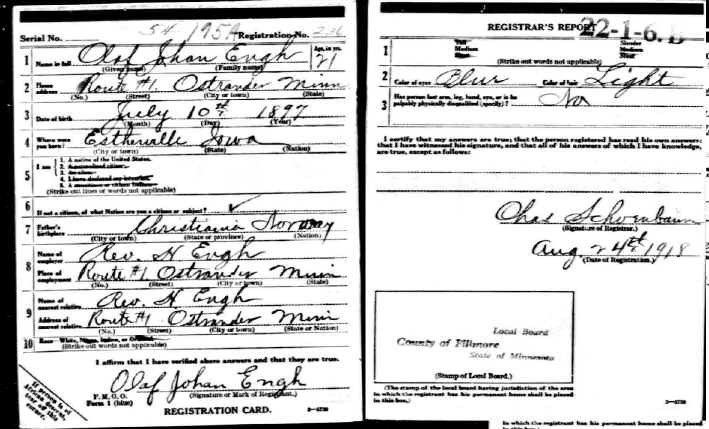 Serial No. 54 195A Registration No.
1 Name in full Olaf Johan Engh Age, in yrs. 21
(Given name) (Family name)
2 Home address Route #1 Ostrander Minn
(No.) (Street) (City or town) (State)
3 Date of birth July 10th 1897
(Month) (Day) (Year)
4 Where were you born? Estherville Iowa
(City or town) (State) (Nation)
5 I am
1. A native of the United States.
2. A naturalized citizen.
3. An alien.
4. I have declared my intention.
5. A noncitizen or citizen Indian.
(Strike out lines or words not applicable)
6 If not a citizen, of what Nation are you a citizen or subject?
7 Father's birthplace Christiania Norway
(City or town) (State or province) (Nation)
8 Name of employer Rev. H Engh
Place of employment Route #1 Ostrander Minn
(No.) (Street) (City or town) (State)
9 Name of nearest relative Rev. H Engh
Address of nearest relative Route #1 Ostrander Minn
(No.) (Street) (City or town) (State or Nation)
10 Race—White,
(Strike out words not applicable)
I affirm that I have verified above answers and that they are true.
Olaf Johan Engh
P. M. G. O.
Form 1 (blue)
(Signature or Mark of Registrant.)
REGISTRATION CARD.
If person is of African descent, tear off this corner.
REGISTRAR'S REPORT 22-1-6. D
1 Tall Medium Short Slender Medium Stout
(Strike out words not applicable)
2 Color of eyes Blue Color of hair Light
3 Has person lost arm, leg, hand, eye, or is he palpably physically disqualified (specify)? No
I certify that my answers are true; that the person registered has read his own answers;
that I have witnessed his signature, and that all of his answers of which I have knowledge,
are true, except as follows:
Chas Schornbaum
(Signature of Registrar.)
Aug 24th 1918
(Date of Registration.)
Local Board
County of Fillmore
State of Minnesota
(Stamp of Local Board.)
(The stamp of the local board having jurisdiction of the area
in which the registrant has his permanent home shall be placed
in this box.)
in which the registrant has his permanent home shall be placed
in this box.)